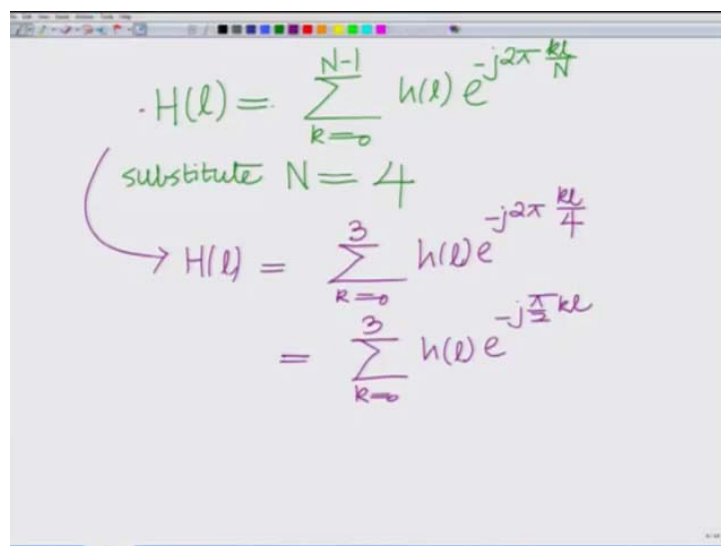 H(l) = N-1 ∑ k=0 h(l) e^{-j2π kl/N}
substitute N = 4
H(l) = 3 ∑ k=0 h(l) e^{-j2π kl/4}
= 3 ∑ k=0 h(l) e^{-j π/2 kl}